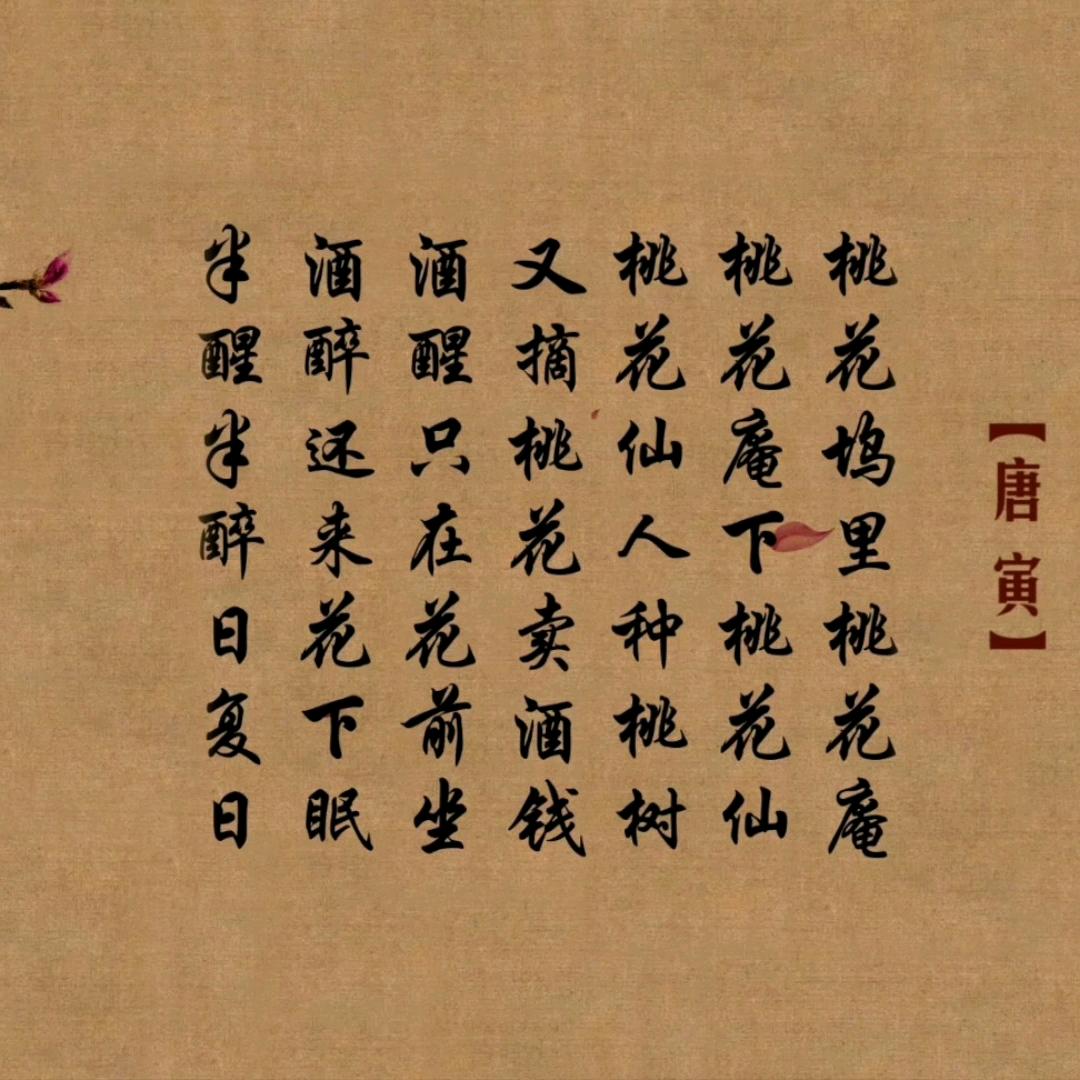 【唐寅】
桃花坞里桃花庵
桃花庵下桃花仙
桃花仙人种桃树
又摘桃花卖酒钱
酒醒只在花前坐
酒醉还来花下眠
半醒半醉日复日